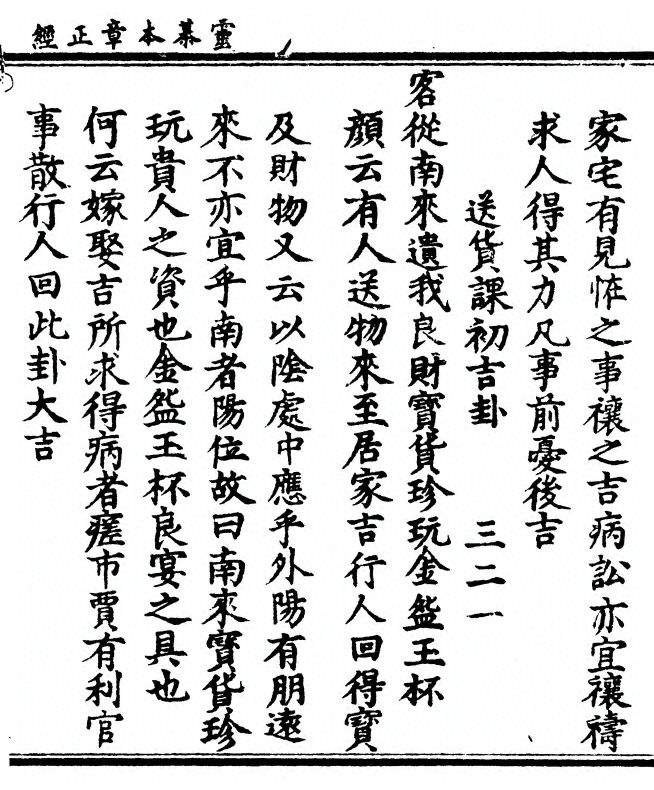 靈棊本章正經
家宅有見恠之事禳之吉病訟亦宜禳禱
求人得其力凡事前憂後吉
送貨課初吉卦　三二一
客從南來遺我良財寶貨珍玩金盌玉杯
顔云有人送物來至居家吉行人回得寶
及財物又云以陰處中應乎外陽有朋遠
來不亦宜乎南者陽位故曰南來寳貨珍
玩貴人之資也金盌玉杯良宴之具也
何云嫁娶吉所求得病者瘥市賈有利官
事散行人回此卦大吉